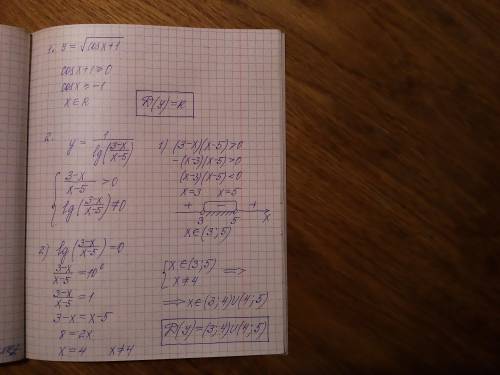 1. y = √(cosx+1)
cosx+1≥0
cosx≥-1
x∈R
D(y)=R
2. y = 1/lg((3-x)/(x-5))
{ (3-x)/(x-5) >0
lg((3-x)/(x-5))≠0
1) (3-x)(x-5)>0
-(x-3)(x-5)>0
(x-3)(x-5)<0
x=3 x=5
+ - +
3 5 x
x∈(3;5)
2) lg((3-x)/(x-5))=0
(3-x)/(x-5)=10⁰
(3-x)/(x-5)=1
3-x=x-5
8=2x
x=4 x≠4
{ x∈(3;5)
x≠4 ⟹
⟹ x∈(3;4)∪(4;5)
D(y)=(3;4)∪(4;5)